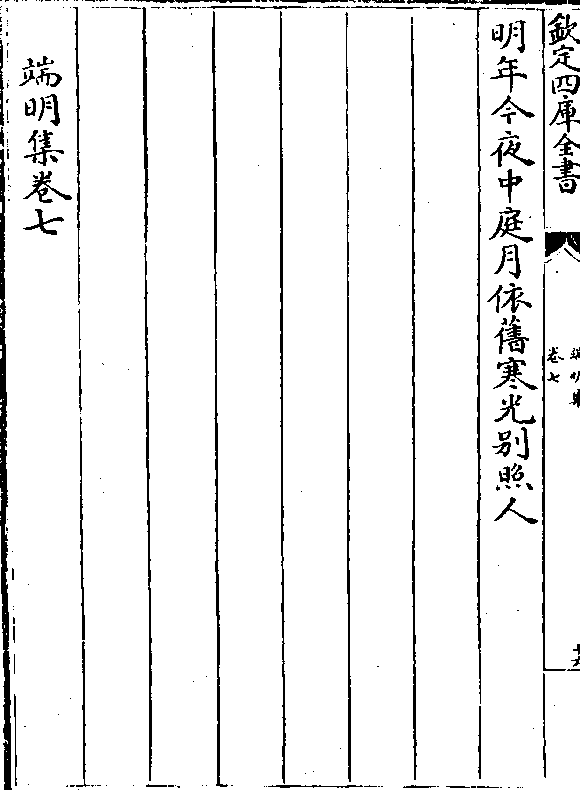 欽定四庫全書
端明集
卷七
明年今夜中庭月依舊寒光別照人
端明集卷七